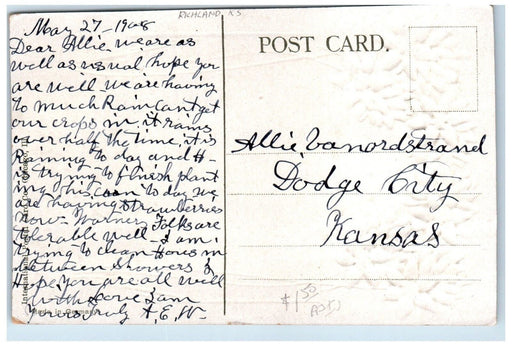 RICHLAND, KS
May 27-1908
Dear Allie, we are as
well as usual hope you
are well we are having
to much Rain cant get
our crops in it rains
over half the time, it is
Raining to day and H-
is trying to finish plant
ing his corn to day we
are having strawberries
now - Warner Folks are
tolerable well - I am
trying to clean House in
between showers
Hope you are all well
with Love I am
yours truly A. E. W-
POST CARD.
Allie Vanordstrand
Dodge City
Kansas
$1.50